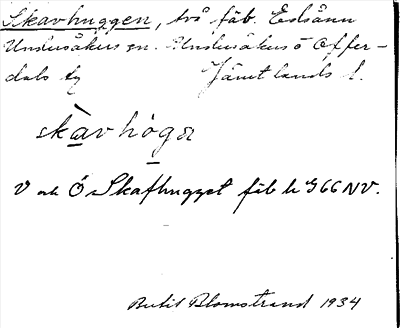 Skavhuggen, två fäb. Edsåsen
Undersåkers sn. Undersåkers o Offer-
dals tg Jämtlands l.
skavhögɑ
V och Ö Skafhugget fäb k G66NV.
Bertil Blomstrand 1934